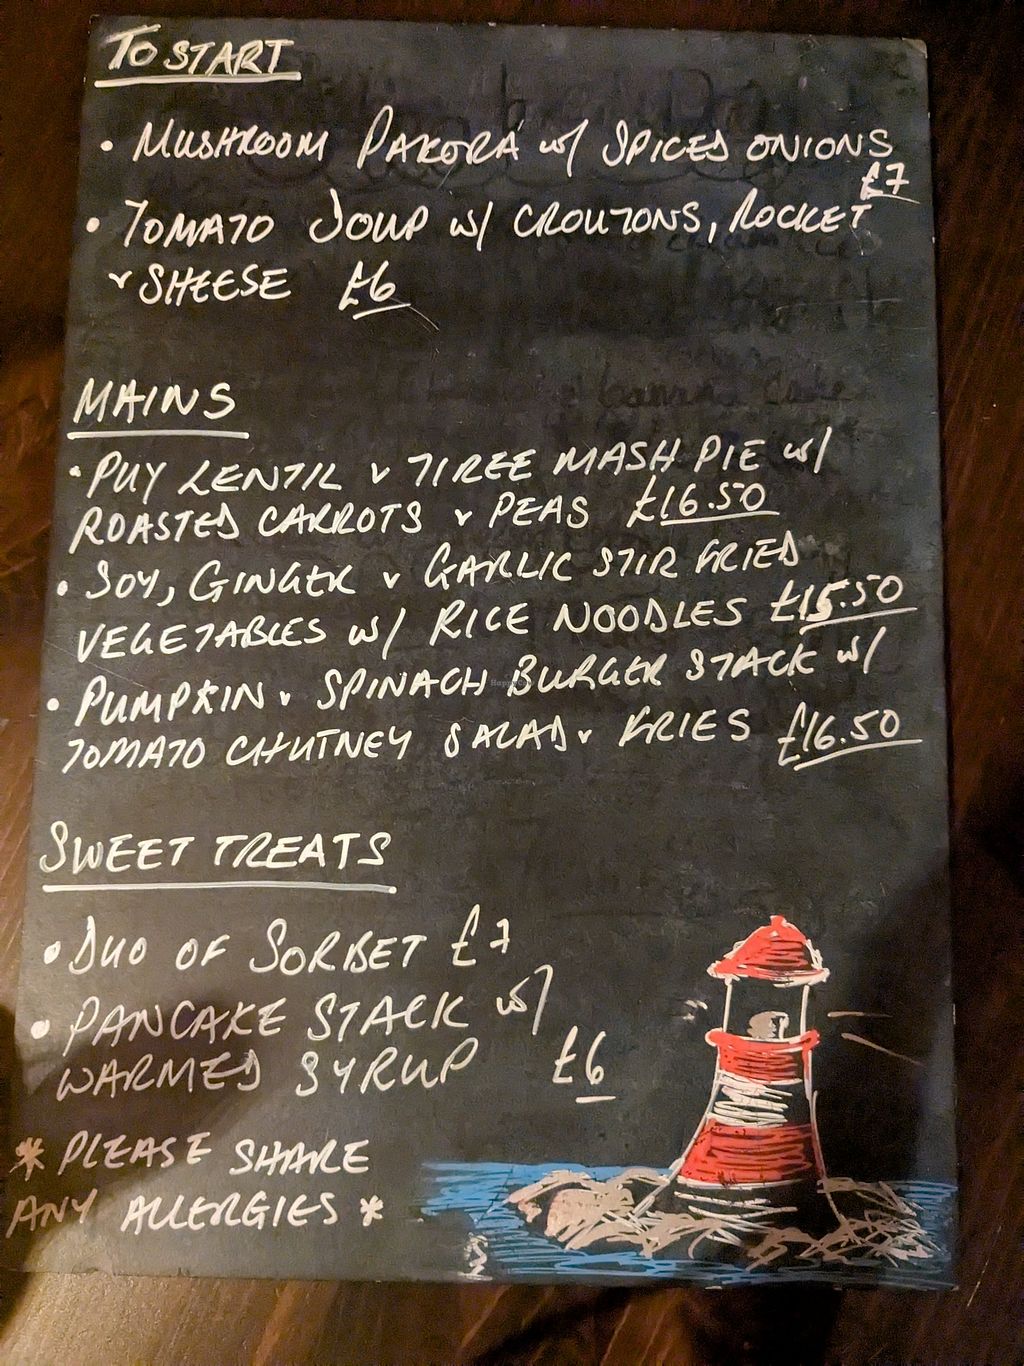 TO START
• MUSHROOM PAKORA w/ SPICED ONIONS
£7
• TOMATO SOUP w/ CROUTONS, ROCKET
+ SHEESE £6
MAINS
• PUY LENTIL + TIREE MASH PIE w/
ROASTED CARROTS + PEAS £16.50
• SOY, GINGER + GARLIC STIR FRIED
VEGETABLES w/ RICE NOODLES £15.50
• PUMPKIN + SPINACH BURGER STACK w/
TOMATO CHUTNEY SALAD + FRIES £16.50
SWEET TREATS
• DUO OF SORBET £7
• PANCAKE STACK w/
WARMED SYRUP £6
* PLEASE SHARE
ANY ALLERGIES *